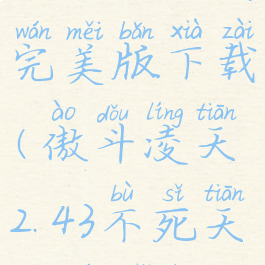 wán měi bǎn xià zài
完美版下载
ào dǒu líng tiān
(傲斗凌天
bù sǐ tiān
2.43不死天